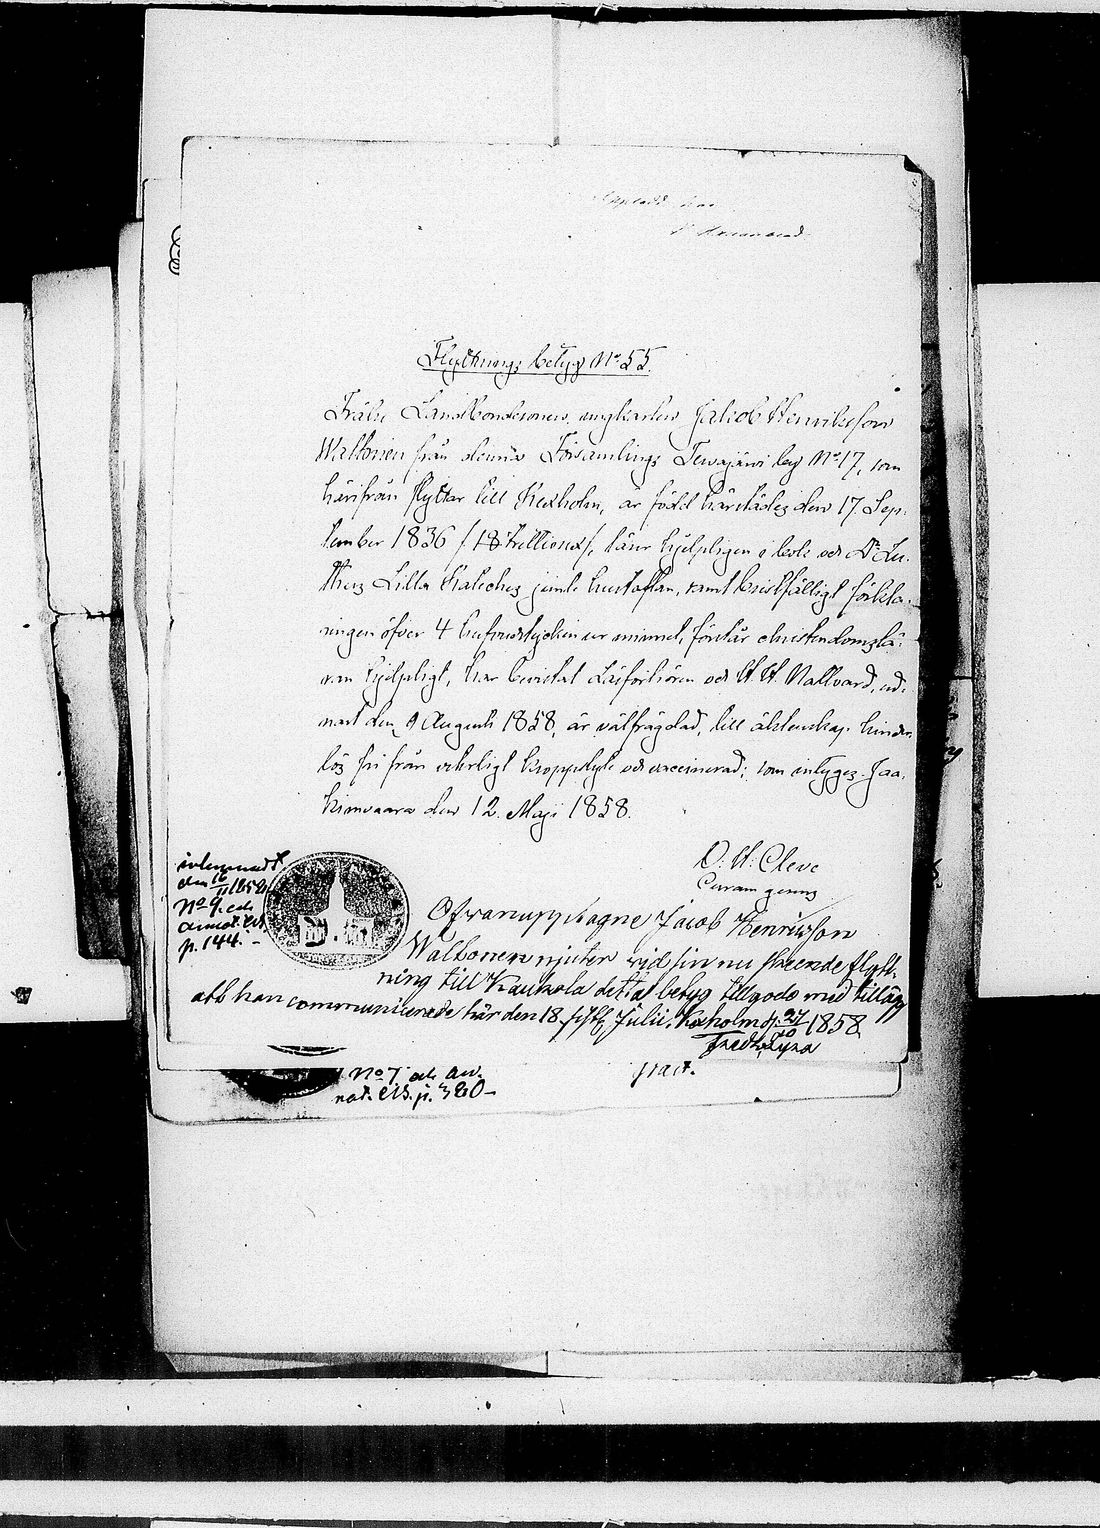 Flyttnings betyg No 55.
Frälse Landbondesonen, ungkarlen Jakob Henriksson
Waltonen från denna Församlings Terwajärwi by No 17, som
härifrån flyttar till Kexholm, är född härstädes den 17 Sep-
tember 1836 /18 /, läser hjelpligen i bok och Dr Lu-
thers Lilla Kateches jemte hustaflan, samt bristfälligt förkla-
ringen öfver 4 hufvudstycken ur minnet, förstår christendomslä-
ran hjelpligt, har bevistat Läsförhören och H. H. Nattvard, ud-
nast den 9 Augusti 1858, är välfrägdad, till äktenskap hinder-
lös fri från ärftligt kroppslyte och vaccinerad; som intygas. Jaa-
kimvaara den 12. Maji 1858.
O. H. Cleve
Curam gerens
inlemnadt
den 16/11 1858
No 9. och
annot. 
p. 144. -
Ofvanuppsagne Jacob Henriksson
Waltonen njuter vid sin nu skeende flytt-
ning till Kaukola detta betyg tillgodo med tillägg
att han communicerade här den 18 sistl. Julii. Kexholm d. 27/10 1858.
Fredr. 
past.
No 7 och an-
not. p. 380-